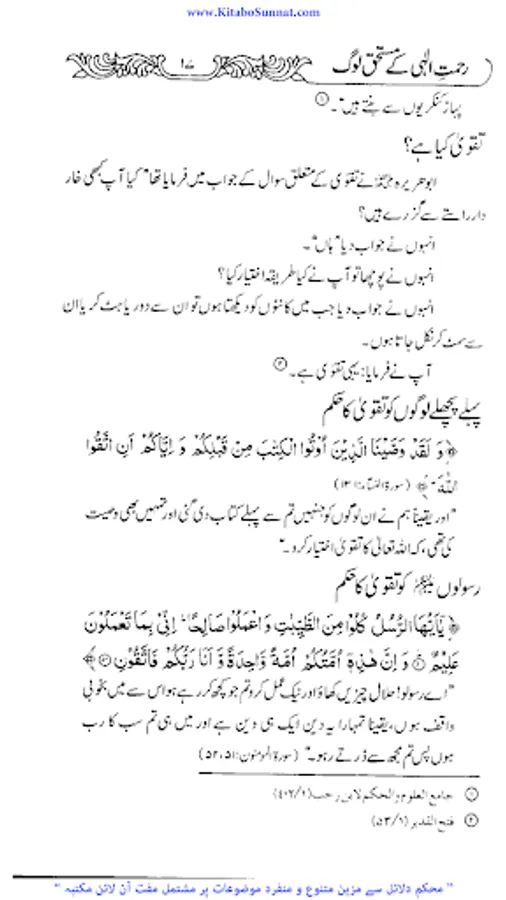 www.KitaboSunnat.com
رحمتِ الٰہی کے مستحق لوگ ۱۷
پہاڑ کنکریوں سے بنتے ہیں“۔ ①
تقویٰ کیا ہے؟
ابوھریرہ رضی اللہ عنہ نے تقویٰ کے متعلق سوال کے جواب میں فرمایا تھا ”کیا آپ کبھی خار
دار راستے سے گزرے ہیں؟
انہوں نے جواب دیا ”ہاں“۔
انہوں نے پوچھا تو آپ نے کیا طریقہ اختیار کیا؟
انہوں نے جواب دیا جب میں کانٹوں کو دیکھتا ہوں تو ان سے دور یا ہٹ کر یا ان
سے سمٹ کر نکل جاتا ہوں۔
آپ نے فرمایا: یہی تقویٰ ہے۔ ②
پہلے پچھلے لوگوں کو تقویٰ کا حکم
﴿وَ لَقَدْ وَصَّيْنَا الَّذِيْنَ اُوْتُوا الْكِتٰبَ مِنْ قَبْلِكُمْ وَ اِيَّاكُمْ اَنِ اتَّقُوا
اللّٰهَ﴾ (سورة النساء: ۱۳۱)
”اور یقیناً ہم نے ان لوگوں کو جنہیں تم سے پہلے کتاب دی گئی اور تمہیں بھی وصیت
کی تھی، کہ اللہ تعالٰی کا تقویٰ اختیار کرو۔“
رسولوں ﷺ کو تقویٰ کا حکم
﴿يٰۤاَيُّهَا الرُّسُلُ كُلُوْا مِنَ الطَّيِّبٰتِ وَ اعْمَلُوْا صَالِحًا ؕ اِنِّيْ بِمَا تَعْمَلُوْنَ
عَلِيْمٌ ۝ وَ اِنَّ هٰذِهٖۤ اُمَّتُكُمْ اُمَّةً وَّاحِدَةً وَّ اَنَا رَبُّكُمْ فَاتَّقُوْنِ ۝﴾
”اے رسولو! حلال چیزیں کھاؤ اور نیک عمل کرو تم جو کچھ کر رہے ہو اس سے میں بخوبی
واقف ہوں، یقیناً تمہارا یہ دین ایک ہی دین ہے اور میں ہی تم سب کا رب
ہوں پس تم مجھ سے ڈرتے رہو۔“ (سورة المومنون: ۵۲،۵۱)
① جامع العلوم والحکم لابن رجب (۴۰۲/۱)
② فتح القدیر (۵۳/۱)
" محکم دلائل سے مزین متنوع و منفرد موضوعات پر مشتمل مفت آن لائن مکتبہ "